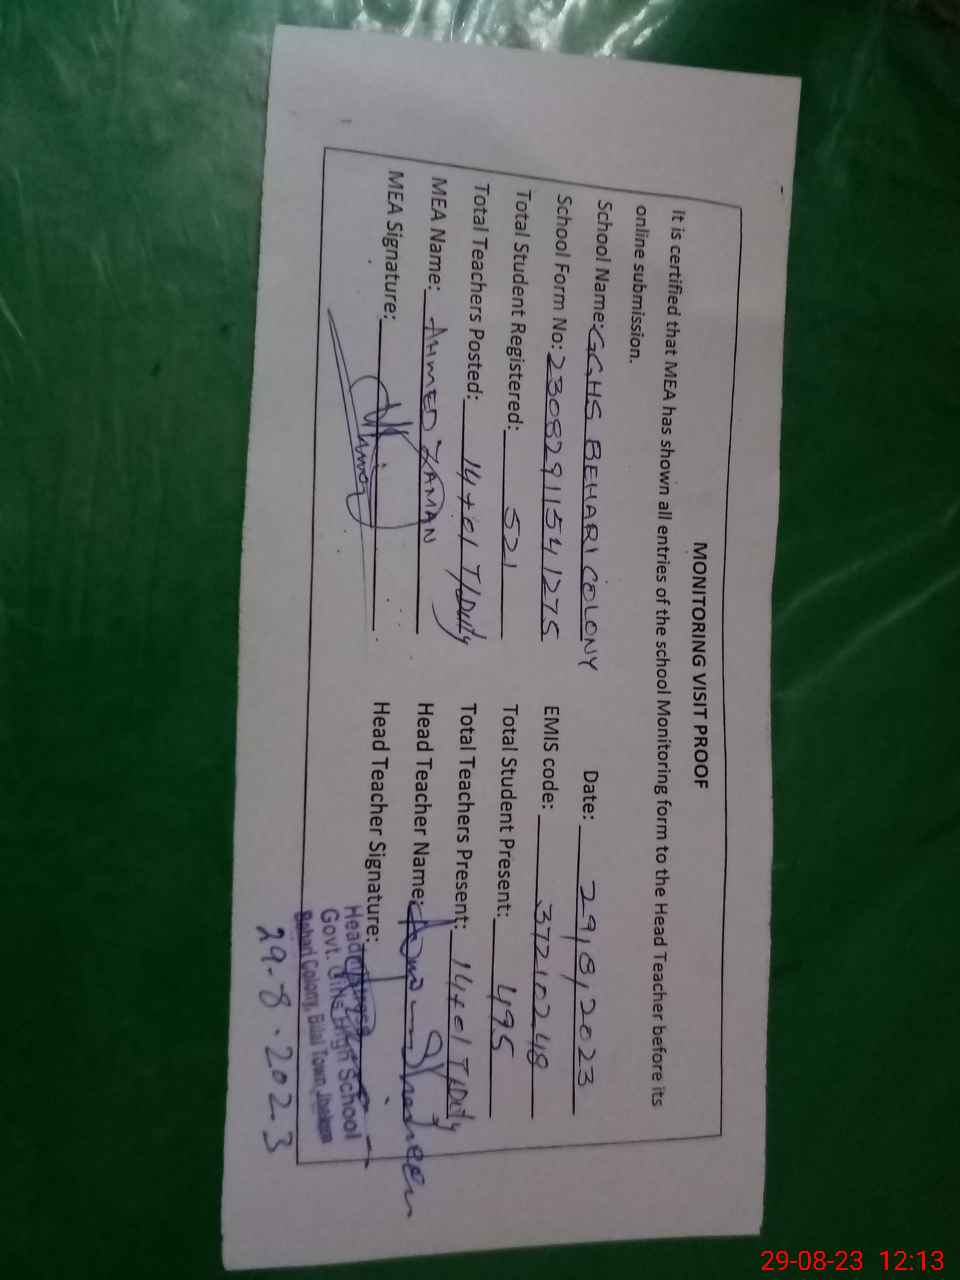 MONITORING VISIT PROOF
It is certified that MEA has shown all entries of the school Monitoring form to the Head Teacher before its
online submission.
School Name: GGHS BEHARI COLONY Date: 29,8,2023
School Form No: 23082911541275 EMIS code: 37210248
Total Student Registered: 521 Total Student Present: 495
Total Teachers Posted: 14+01 T/Duty Total Teachers Present: 14+01 T/Duty
MEA Name: AHMED ZAMAN Head Teacher Name: Shaheen
MEA Signature: Head Teacher Signature:
Govt. Girls High School
Behari Colony, Bilal Town, Jhelum
29.8.2023
29-08-23 12:13